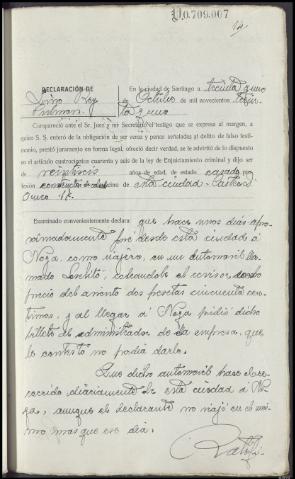 D0.709.007
DECLARACIÓN DE
En la ciudad de Santiago a treinta y uno
de Octubre de mil novecientos trein-
ta y uno
Compareció ante el Sr. Juez y mi Secretario el testigo que se expresa al margen, a
quien S. S. enteró de la obligación de ser veraz y penas señaladas al delito de falso testimo-
nio, prestó juramento en forma legal, ofreció decir verdad, se le advirtió de lo dispuesto
en el artículo cuatrocientos cuarenta y seis de la ley de Enjuiciamiento criminal y dijo ser
de veintitres años de edad, de estado, casado pro-
fesión de esta ciudad
17.
Examinado convenientemente declara que hace unos días apro-
ximadamente fue desde esta ciudad a
Noya como viajero, en un automovil lla-
mado cobrandole el revisor, como
precio del asiento dos pesetas cincuenta cen-
timos, y al llegar a Noya pidió dicho
billete al administrador de la empresa, que
le contestó no podia darlo.
Que dicho automovil hace el re-
corrido diariamente de esta ciudad a No-
ya, aunque el declarante no viajó en el mis-
mo mas que ese dia.